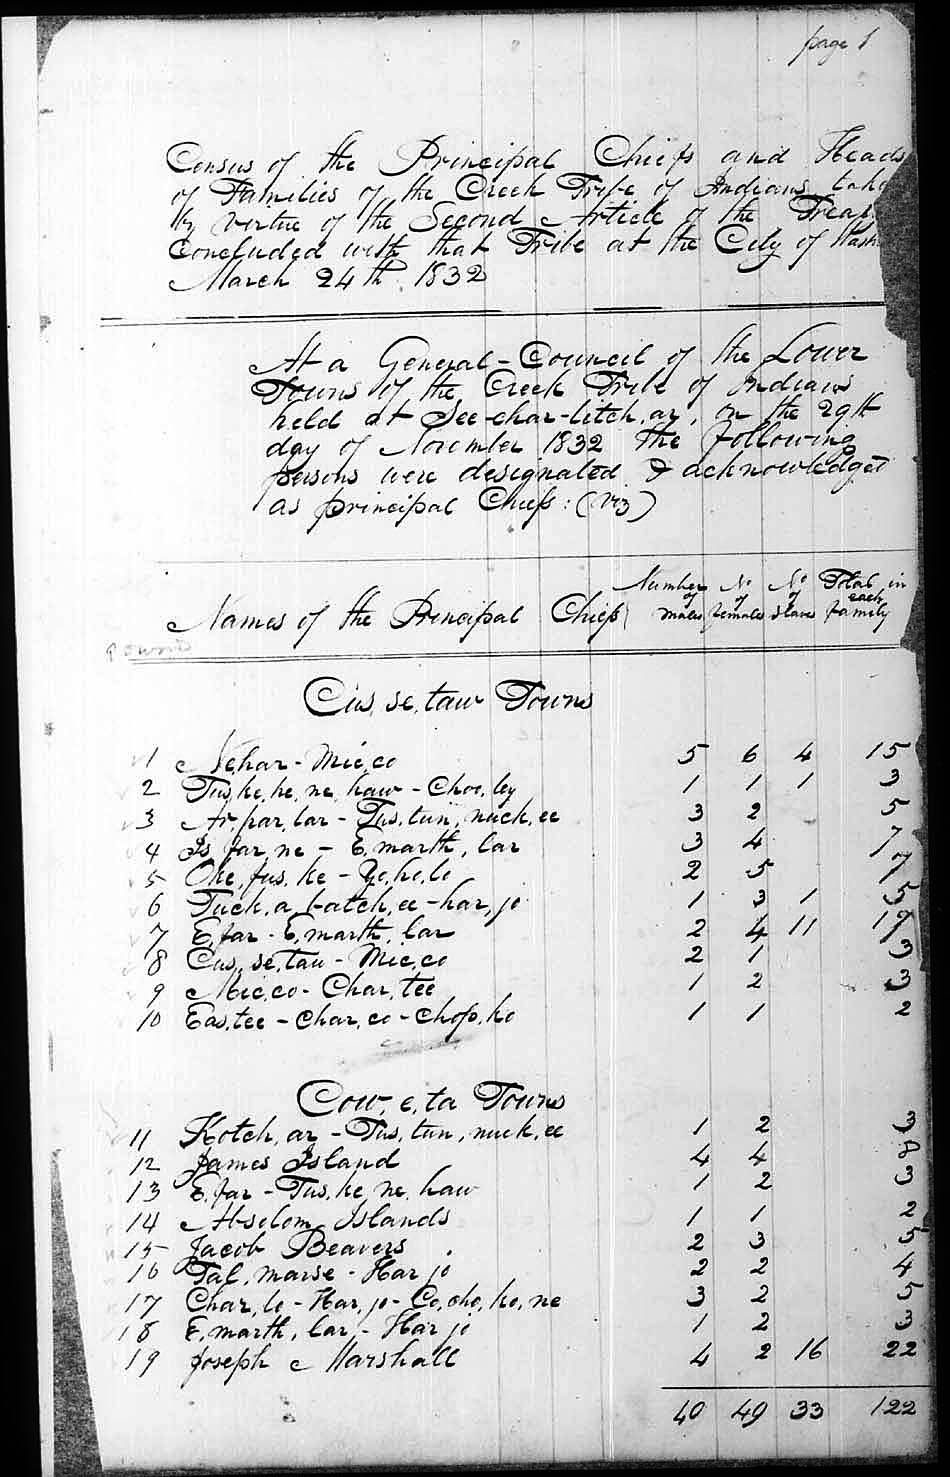 page 1
Census of the Principal Chiefs and Heads
of Families of the Creek Tribe of Indians, take
by virtue of the Second Article of the Treat
Concluded with that Tribe at the City of Wash
March 24th. 1832
At a General-Council of the Lower
Towns of the Creek Tribe of Indians
held at See-char-litch,ar, on the 29th
day of November 1832 the following
persons were designated & acknowledged
as principal Chiefs: (viz)
Names of the Principal Chiefs Number of males No of females No of Slaves Total in each family
Towns
Cus,se,taw Towns
1 Nehar-Mic,co 5 6 4 15
2 Tus,ke,he,ne,haw-Choo,ley 1 1 1 3
3 Ar,par,lar-Tus,tun,nuck,ee 3 2 5
4 Is far,ne-E,marth,lar 3 4 7
5 Oke,fus,ke-Yo,ho,lo 2 5 7
6 Tuck,a,batch,ee-har,jo 1 3 1 5
7 E,far-E,marth,lar 2 4 11 17
8 Cus,se,taw-Mic,co 2 1 3
9 Mic,co-Char,tee 1 2 3
10 Eas,tee-Char,co-Chop,ko 1 1 2
Cow,e,ta Towns
11 Kotch,ar-Tus,tun,nuck,ee 1 2 3
12 James Island 4 4 8
13 E,far-Tus,ke,ne,haw 1 2 3
14 Absolom Islands 1 1 2
15 Jacob Beavers 2 3 5
16 Tal,marse-Har jo 2 2 4
17 Char,lo-Har,jo-Co,cho,ko,ne 3 2 5
18 E,marth,lar-Har jo 1 2 3
19 Joseph Marshall 4 2 16 22
40 49 33 122